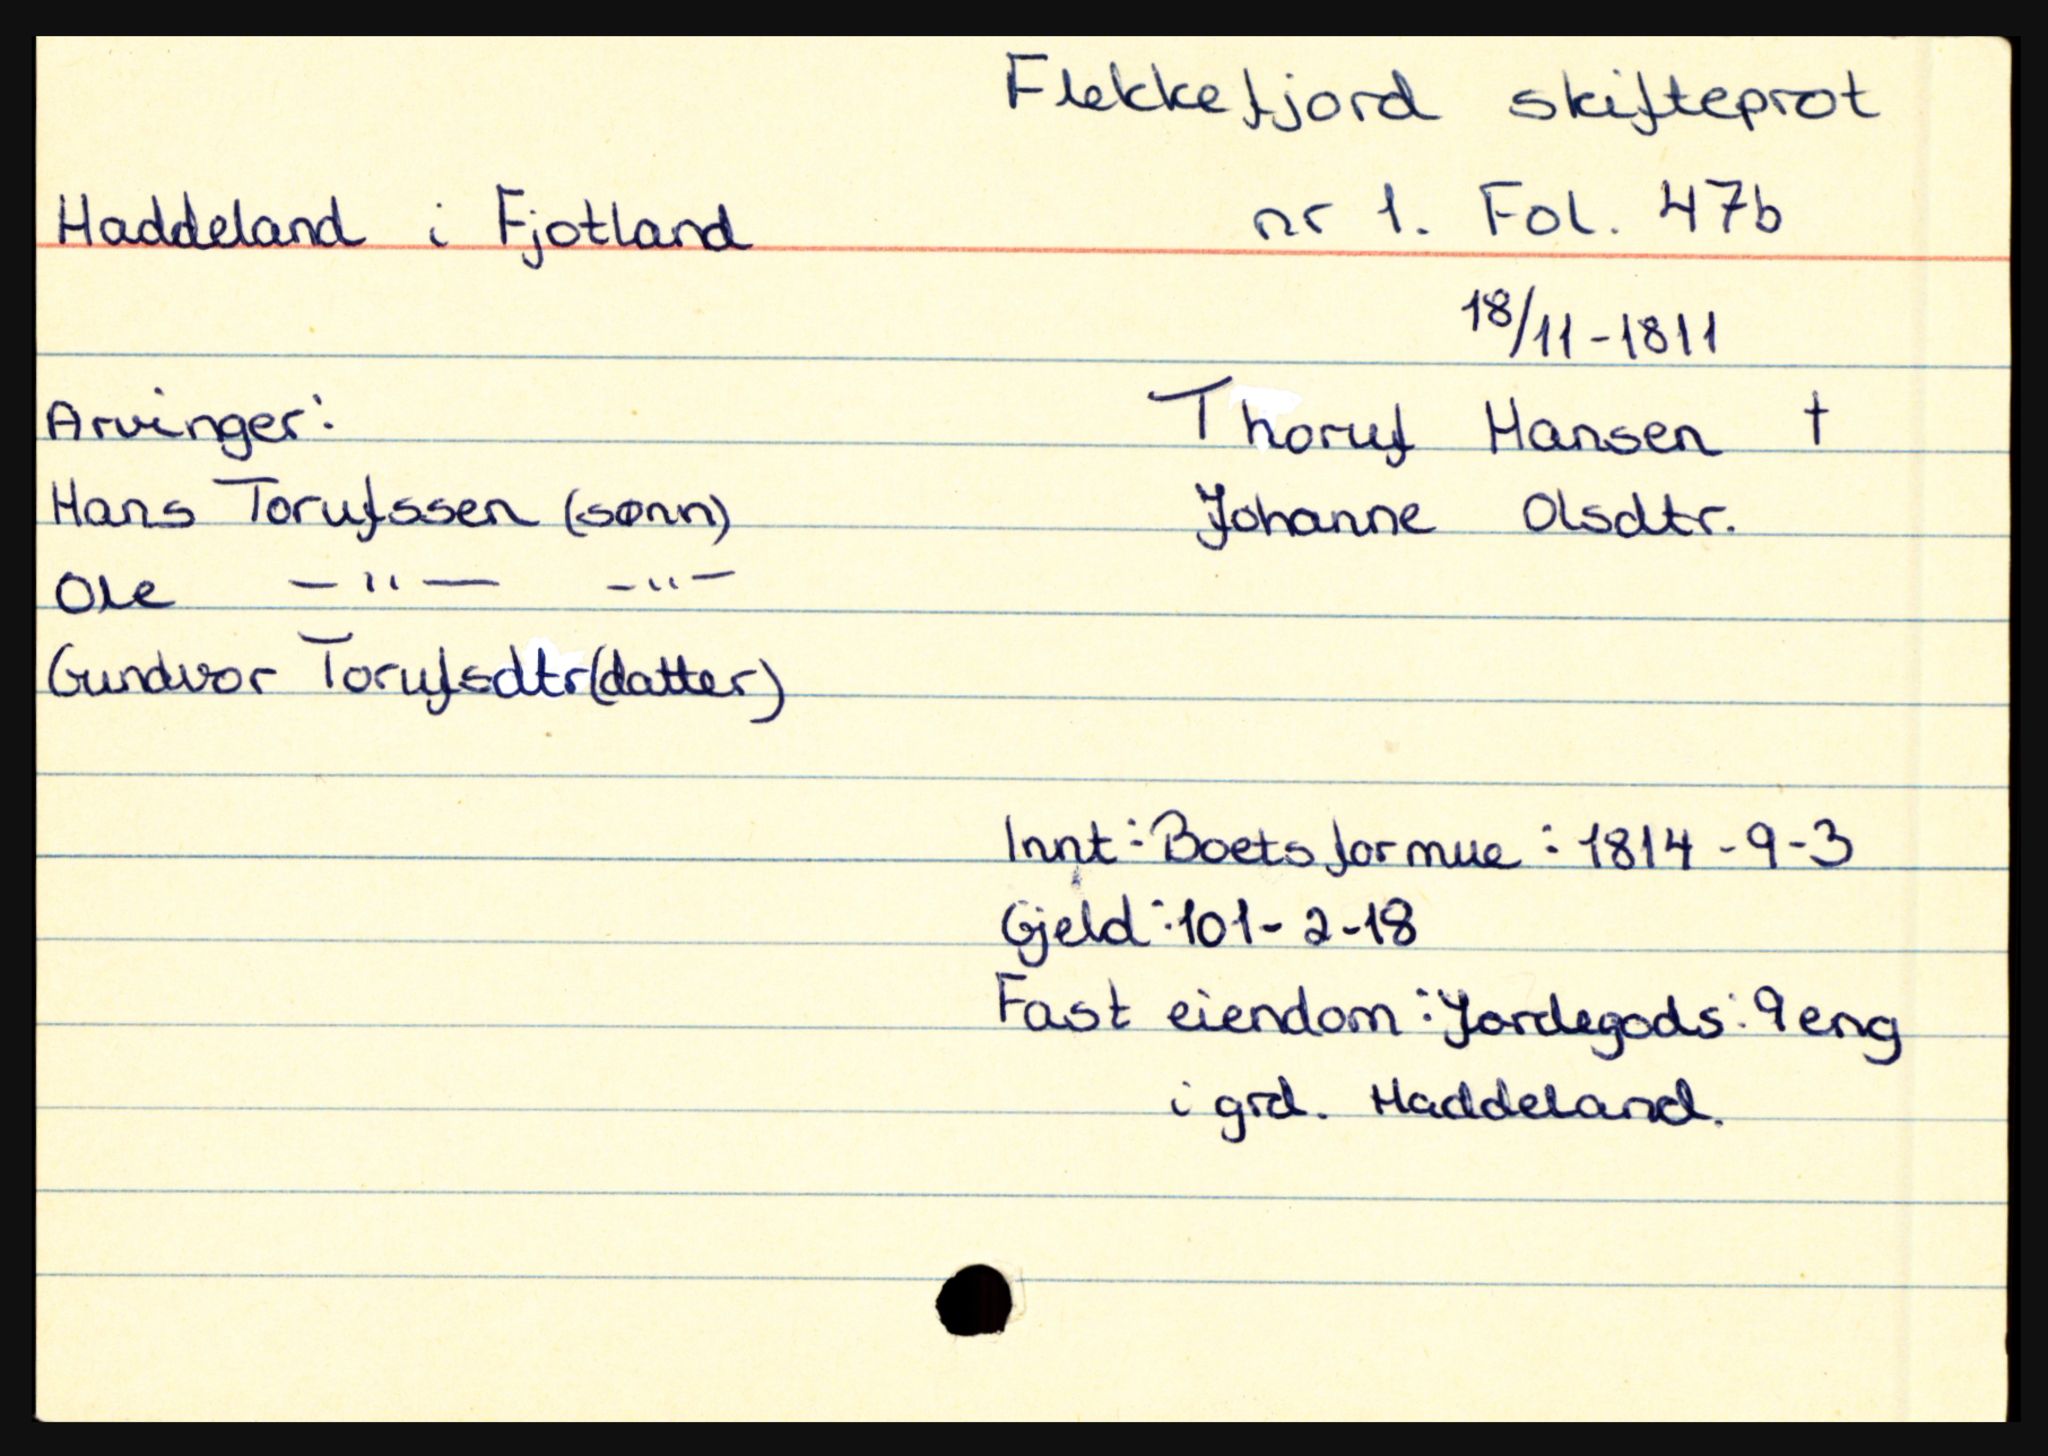 Flekkefjord skifteprot
Haddeland i Fjotland nr 1. Fol. 47b
18/11-1811
Arvinger: Thoruf Hansen †
Hans Torufssen (sønn) Johanne Olsdtr.
Ole -"- -"-
Gundvor Torufsdtr (datter)
Innt: Boets formue: 1814-9-3
Gjeld: 101-2-18
Fast eiendom: Jordegods: 9 eng
i grd. Haddeland.